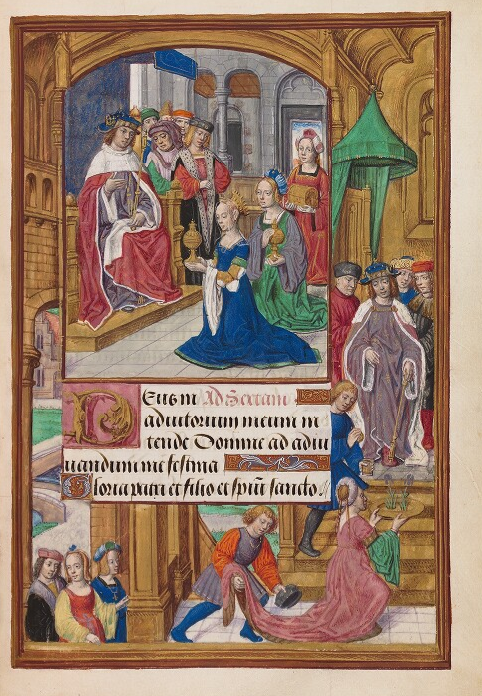 Deus in Ad Sextam
adiutorium meum in
tende Domine ad adiu
uandum me festina
Gloria patri et filio et spiui sancto.